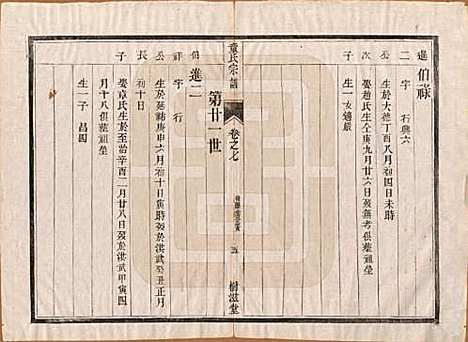 進 伯祿
二 字 行興六
公 生於大德丁酉八月初四日未時
次 娶趙氏生仝庚九月廿六日歿續考俱葬祖塋
子 生一女適嚴
童氏宗譜
卷之七
五
樹滋堂
第廿一世
伯 進二
祥 字 行
公 生於延祐庚申六月初十日寅時歿於洪武癸丑正月
長 初十日
子 娶章氏生於至治辛酉二月廿八日歿於洪武甲寅四
月十八俱葬祖塋
生一子 昌四